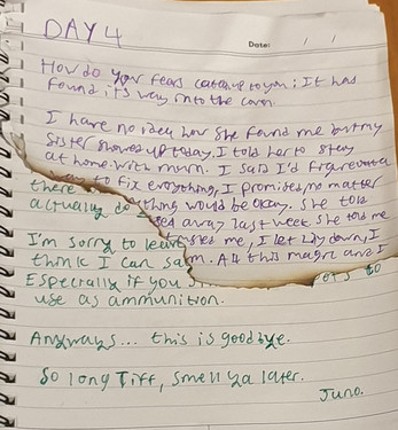 DAY 4
Date: / /
How do your fears catch up to you: It has
found its way into the cavern.
I have no idea how she found me but my
sister showed up today. I told her to stay
at home with mum. I said I'd figure out a
way to fix everything, I promised, no matter
there
actually do thing would be okay. She told
sed away last week. She told me
I'm sorry to leave me, I let Lily down, I
think I can sa m. All this magic and I
Especially if you to
use as ammunition.
Anyways... this is goodbye.
So long Tiff, smell ya later.
Juno.